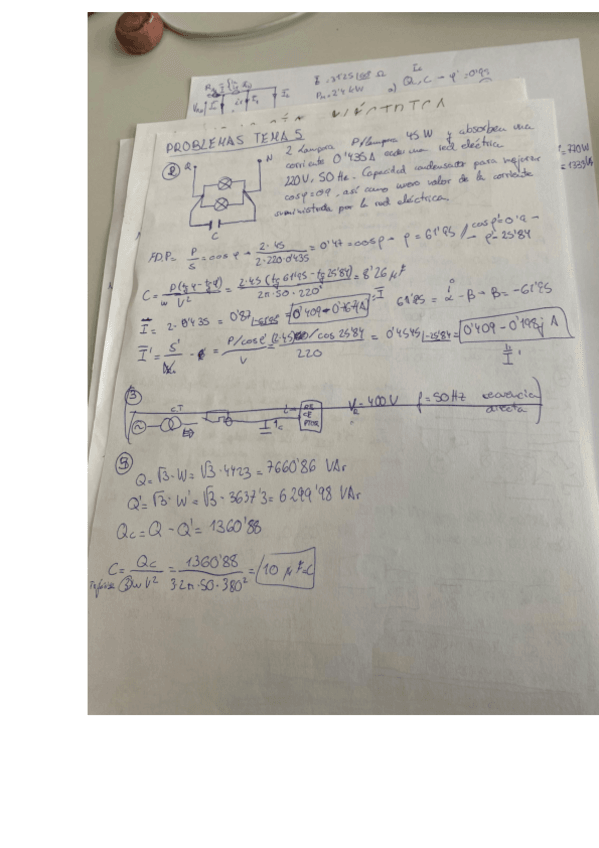 Q_c C → φ' = 0'95
PROBLEMAS TEMA 5
② 2 lámpara P/lámpara 45 W y absorben una
corriente 0'435 A red eléctrica
220 V, 50 Hz. Capacidad condensador para mejorar
cosφ=0'9, así como nuevo valor de la corriente
suministrada por la red eléctrica.
R N
C
F.D.P= P/S = cos φ → 2·45/2·220·0'435 = 0'47 = cosφ → φ = 61'95 / cosφ' = 0'9 → φ' = 25'84
C = P(tgφ-tgφ')/wV² = 2·45(tg 61'95 - tg 25'84)/2π·50·220² = 8'26 μF
I = 2·0'435 = 0'87 = I 61'95 = α - β → β = -61'95
I' = S'/V = P/cosφ'/V = (2·45)/cos 25'84/220 = 0'4545 |-25'84 = 0'409 - 0'198j A
I'
③ C.T L RE CE PTOR V_L = 400 V f = 50 Hz secuencia
directa
⑨
Q = √3·W = √3·4423 = 7660'86 VAr
Q' = √3·W' = √3·3637'3 = 6299'98 VAr
Qc = Q - Q' = 1360'88
C = Qc/3wV² = 1360'88/3·2π·50·380² = 10 μF